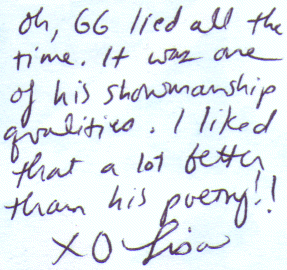 Oh, GG lied all the
time. It was one
of his showmanship
qualities. I liked
that a lot better
than his poetry!!
XO Lisa